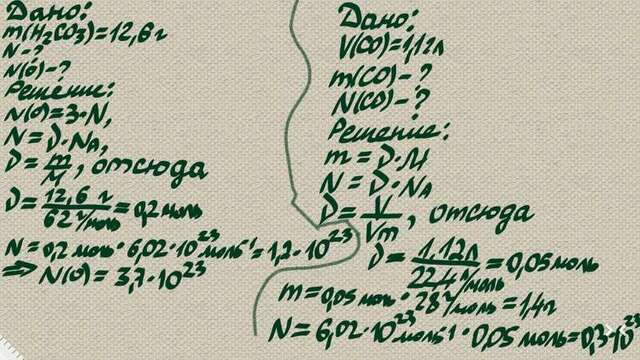 Дано:
m(H₂CO₃)=12,6г
N-?
N(O)-?
Решение:
N(O)=3·N,
N=ν·Nₐ,
ν=m/M, отсюда
ν=12,6 г/62 г/моль=0,2 моль
N=0,2 моль·6,02·10²³моль⁻¹=1,2·10²³
⇒ N(O)=3,7·10²³
Дано:
V(CO)=1,12л
m(CO)-?
N(CO)-?
Решение:
m=ν·M
N=ν·Nₐ
ν=V/Vm, отсюда
ν=1,12л/22,4 л/моль=0,05моль
m=0,05 моль·28 г/моль=1,4г
N=6,02·10²³моль⁻¹·0,05моль=0,3·10²³